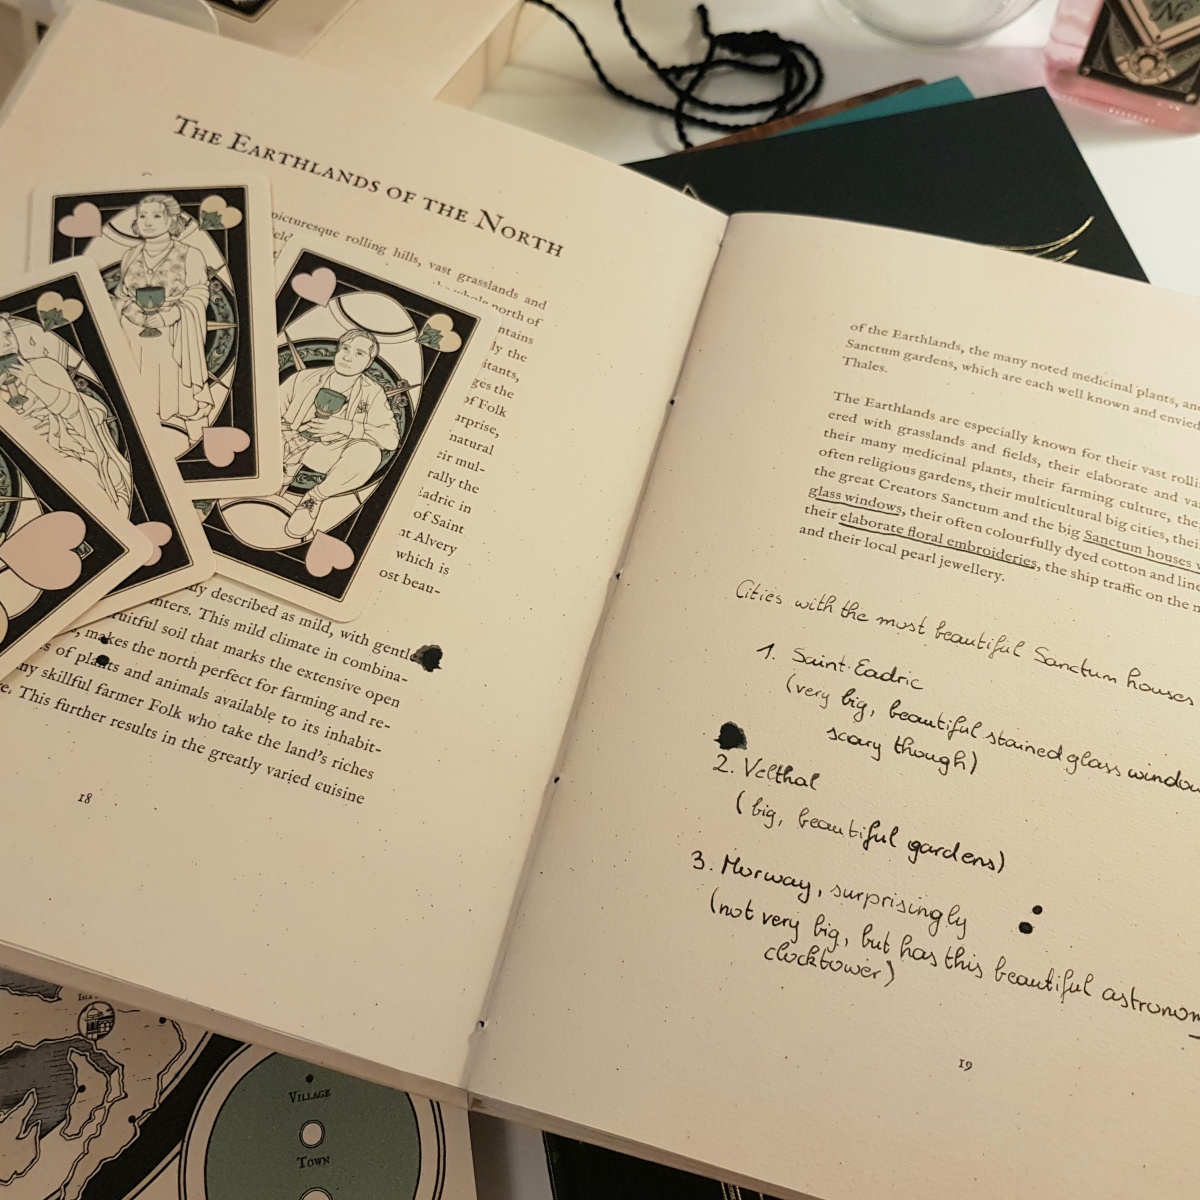 THE EARTHLANDS OF THE NORTH
picturesque rolling hills, vast grasslands and
whole north of
ly the
of Folk
natural
rally the
in
of Saint
Alvery
which is
described as mild, with gentle
This mild climate in combina-
soil that marks the extensive open
makes the north perfect for farming and re-
of plants and animals available to its inhabit-
skillful farmer Folk who take the land's riches
This further results in the greatly varied cuisine
18
of the Earthlands, the many noted medicinal plants,
Sanctum gardens, which are each well known and envied
Thales.
The Earthlands are especially known for their vast
ered with grasslands and fields, their elaborate and
their many medicinal plants, their farming culture,
often religious gardens, their multicultural big cities,
the great Creators Sanctum and the big Sanctum houses
glass windows, their often colourfully dyed cotton and
their elaborate floral embroideries, the ship traffic on the
and their local pearl jewellery.
Cities with the most beautiful Sanctum houses
1. Saint-Eadric
(very big, beautiful stained glass
scary though)
2. Velthal
(big, beautiful gardens)
3. Morway, surprisingly
(not very big, but has this beautiful
clocktower)
19
ISLE
VILLAGE
TOWN